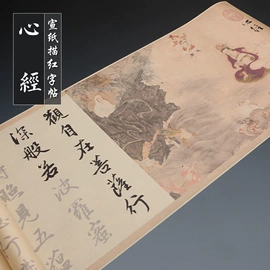 宣紙描紅字帖
心經
觀自在菩薩行
深般若波羅蜜
照見五